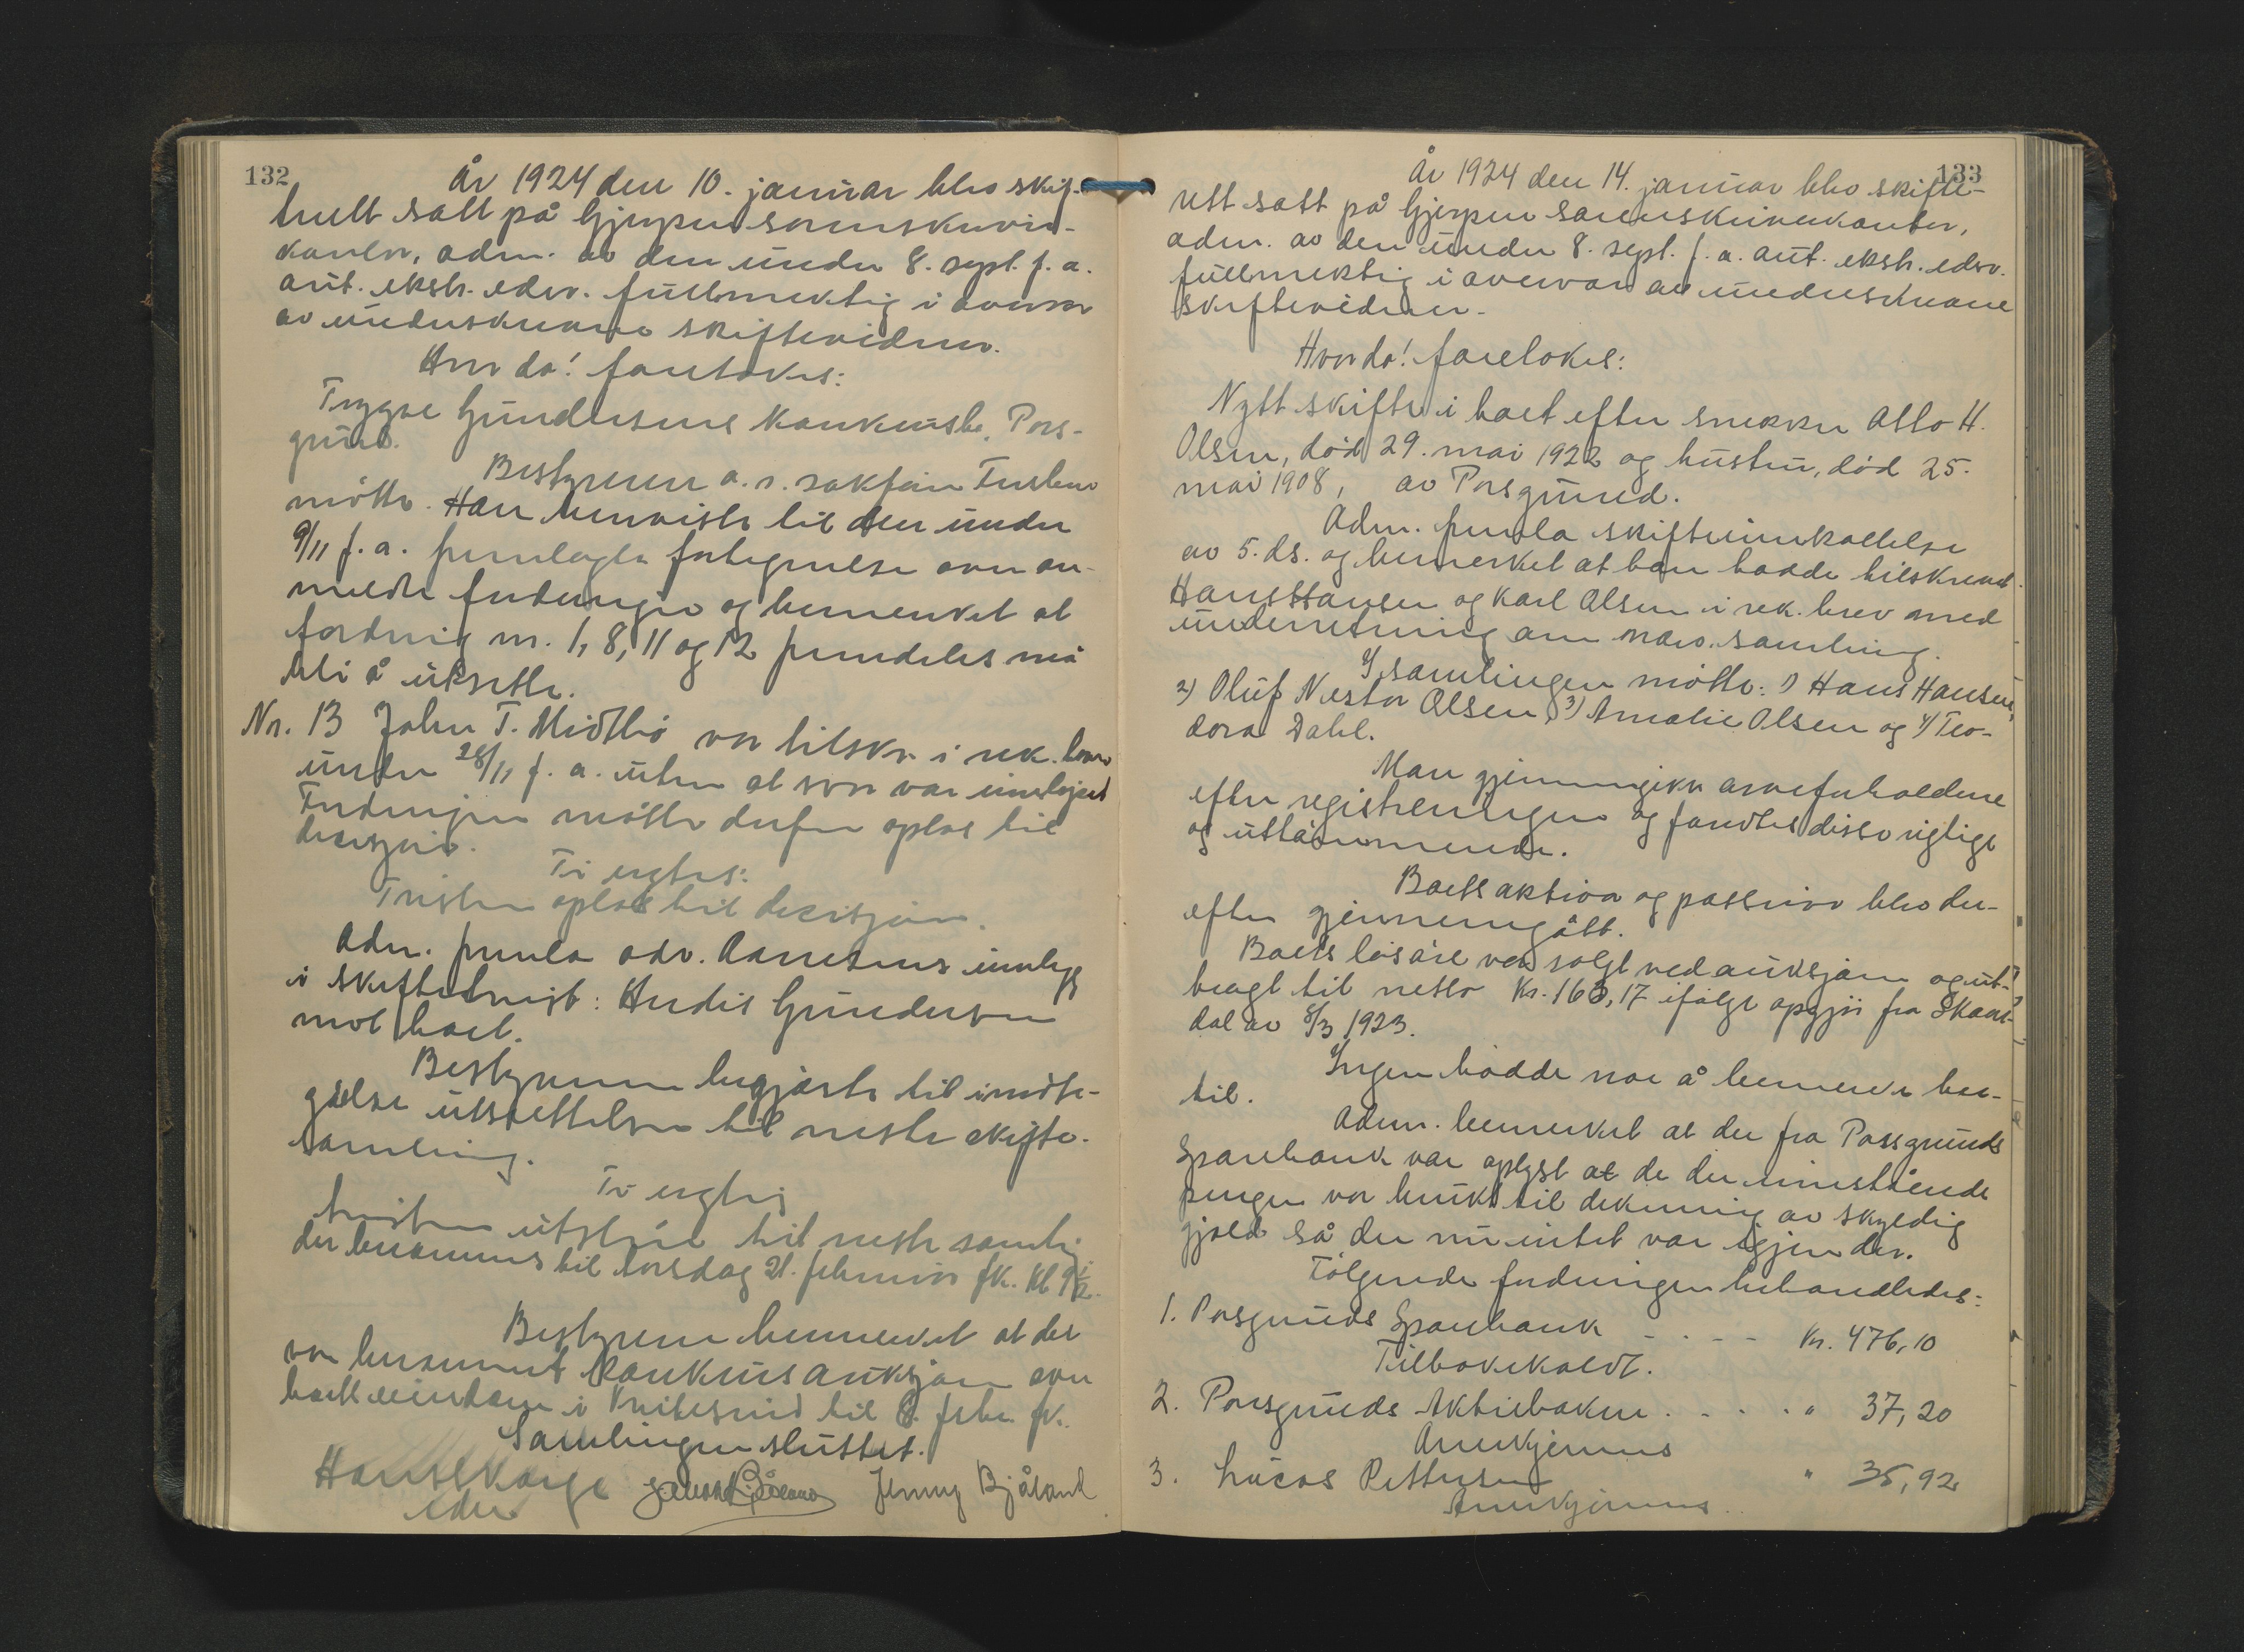 132
År 1924 den 10. januar blev skif-
terett satt på Gjerpen sorenskriver-
kontor, adm. av den under 8. sept. f. a.
aut. ekstr. edsv. fullmektig i overvær
av underskrevne skiftevidner.
Hvor da! foretokes:
Trygve Gundersens konkursbo, Pors-
grund.
Bestyreren o.r. sakfører
møtte. Han henviste til den under
9/11 f. a. fremlagte fortegnelse over an-
meldte fordringer og bemerket at
fordring nr. 1, 8, 11 og 12 fremdeles må
bli å utsette.
Nr. 13 John T. Midtbö var tilskr. i rek. brev
under 28/11 f. a. uten at svar var innløpet
Fordringen måtte derfor optas til
decisjon.
Ti vigtes:
Tvisten optas til decisjon.
Adm. fremla adv. innlegg
i skiftetvist: Herdis Gundersen
mot boet.
Bestyreren begjærte til imøte-
gåelse utsettelse til neste skifte-
samling.
Ti vigtes
tvisten utstår til neste samling
der berammes til torsdag 21. februar fk. kl 9½.
Bestyreren bemerket at det
var berammet konkursauksjon over
boets eiendom i til 8. febr. fk.
Samlingen sluttet.
Jenny Bjåland
edsv.
133
År 1924 den 14. januar blev skifte-
rett satt på Gjerpen sorenskriverkontor,
adm. av den under 8. sept. f. a. aut. ekstr. edsv.
fullmektig i overvær av underskrevne
skiftevidner.
Hvor da! foretokes:
Nytt skifte i boet efter snekker Otto H.
Olsen, død 29. mai 1922 og hustru, død 25.
mai 1908, av Porsgrund.
Adm. fremla skifteinnkallelse
av 5. ds. og bemerket at han hadde tilskrevet
Hans Hansen og Karl Olsen i rek. brev med
underretning om nærv. samling.
I samlingen møtte: 1) Hans Hansen,
2) Oluf Nestor Olsen, 3) Amalie Olsen og 4) Teo-
dora Dahl.
Man gjennemgikk arveforholdene
efter registreringen og fandtes disse rigtige
og uttømmende.
Boets aktiva og passiva blev der-
efter gjennemgått.
Boets løsøre var solgt ved auksjon og ut-
bragt til netto Kr. 163,17 ifølge opgjør fra Skaar-
dal av 8/3 1923.
Ingen hadde noe å bemerke her-
til.
Adm. bemerket at der fra Porsgrunds
Sparebank var oplyst at de der innestående
penger var brukt til dekning av skyldig
gjeld så der nu intet var igjen der.
Følgende fordringer behandledes:
1. Porsgrunds Sparebank - - - - Kr. 476,10
Tilbakekaldt.
2. Porsgrunds Aktiebanken . - . . " 37,20
Anerkjennes
3. Lucas Pettersen " 35,92
Anerkjennes.